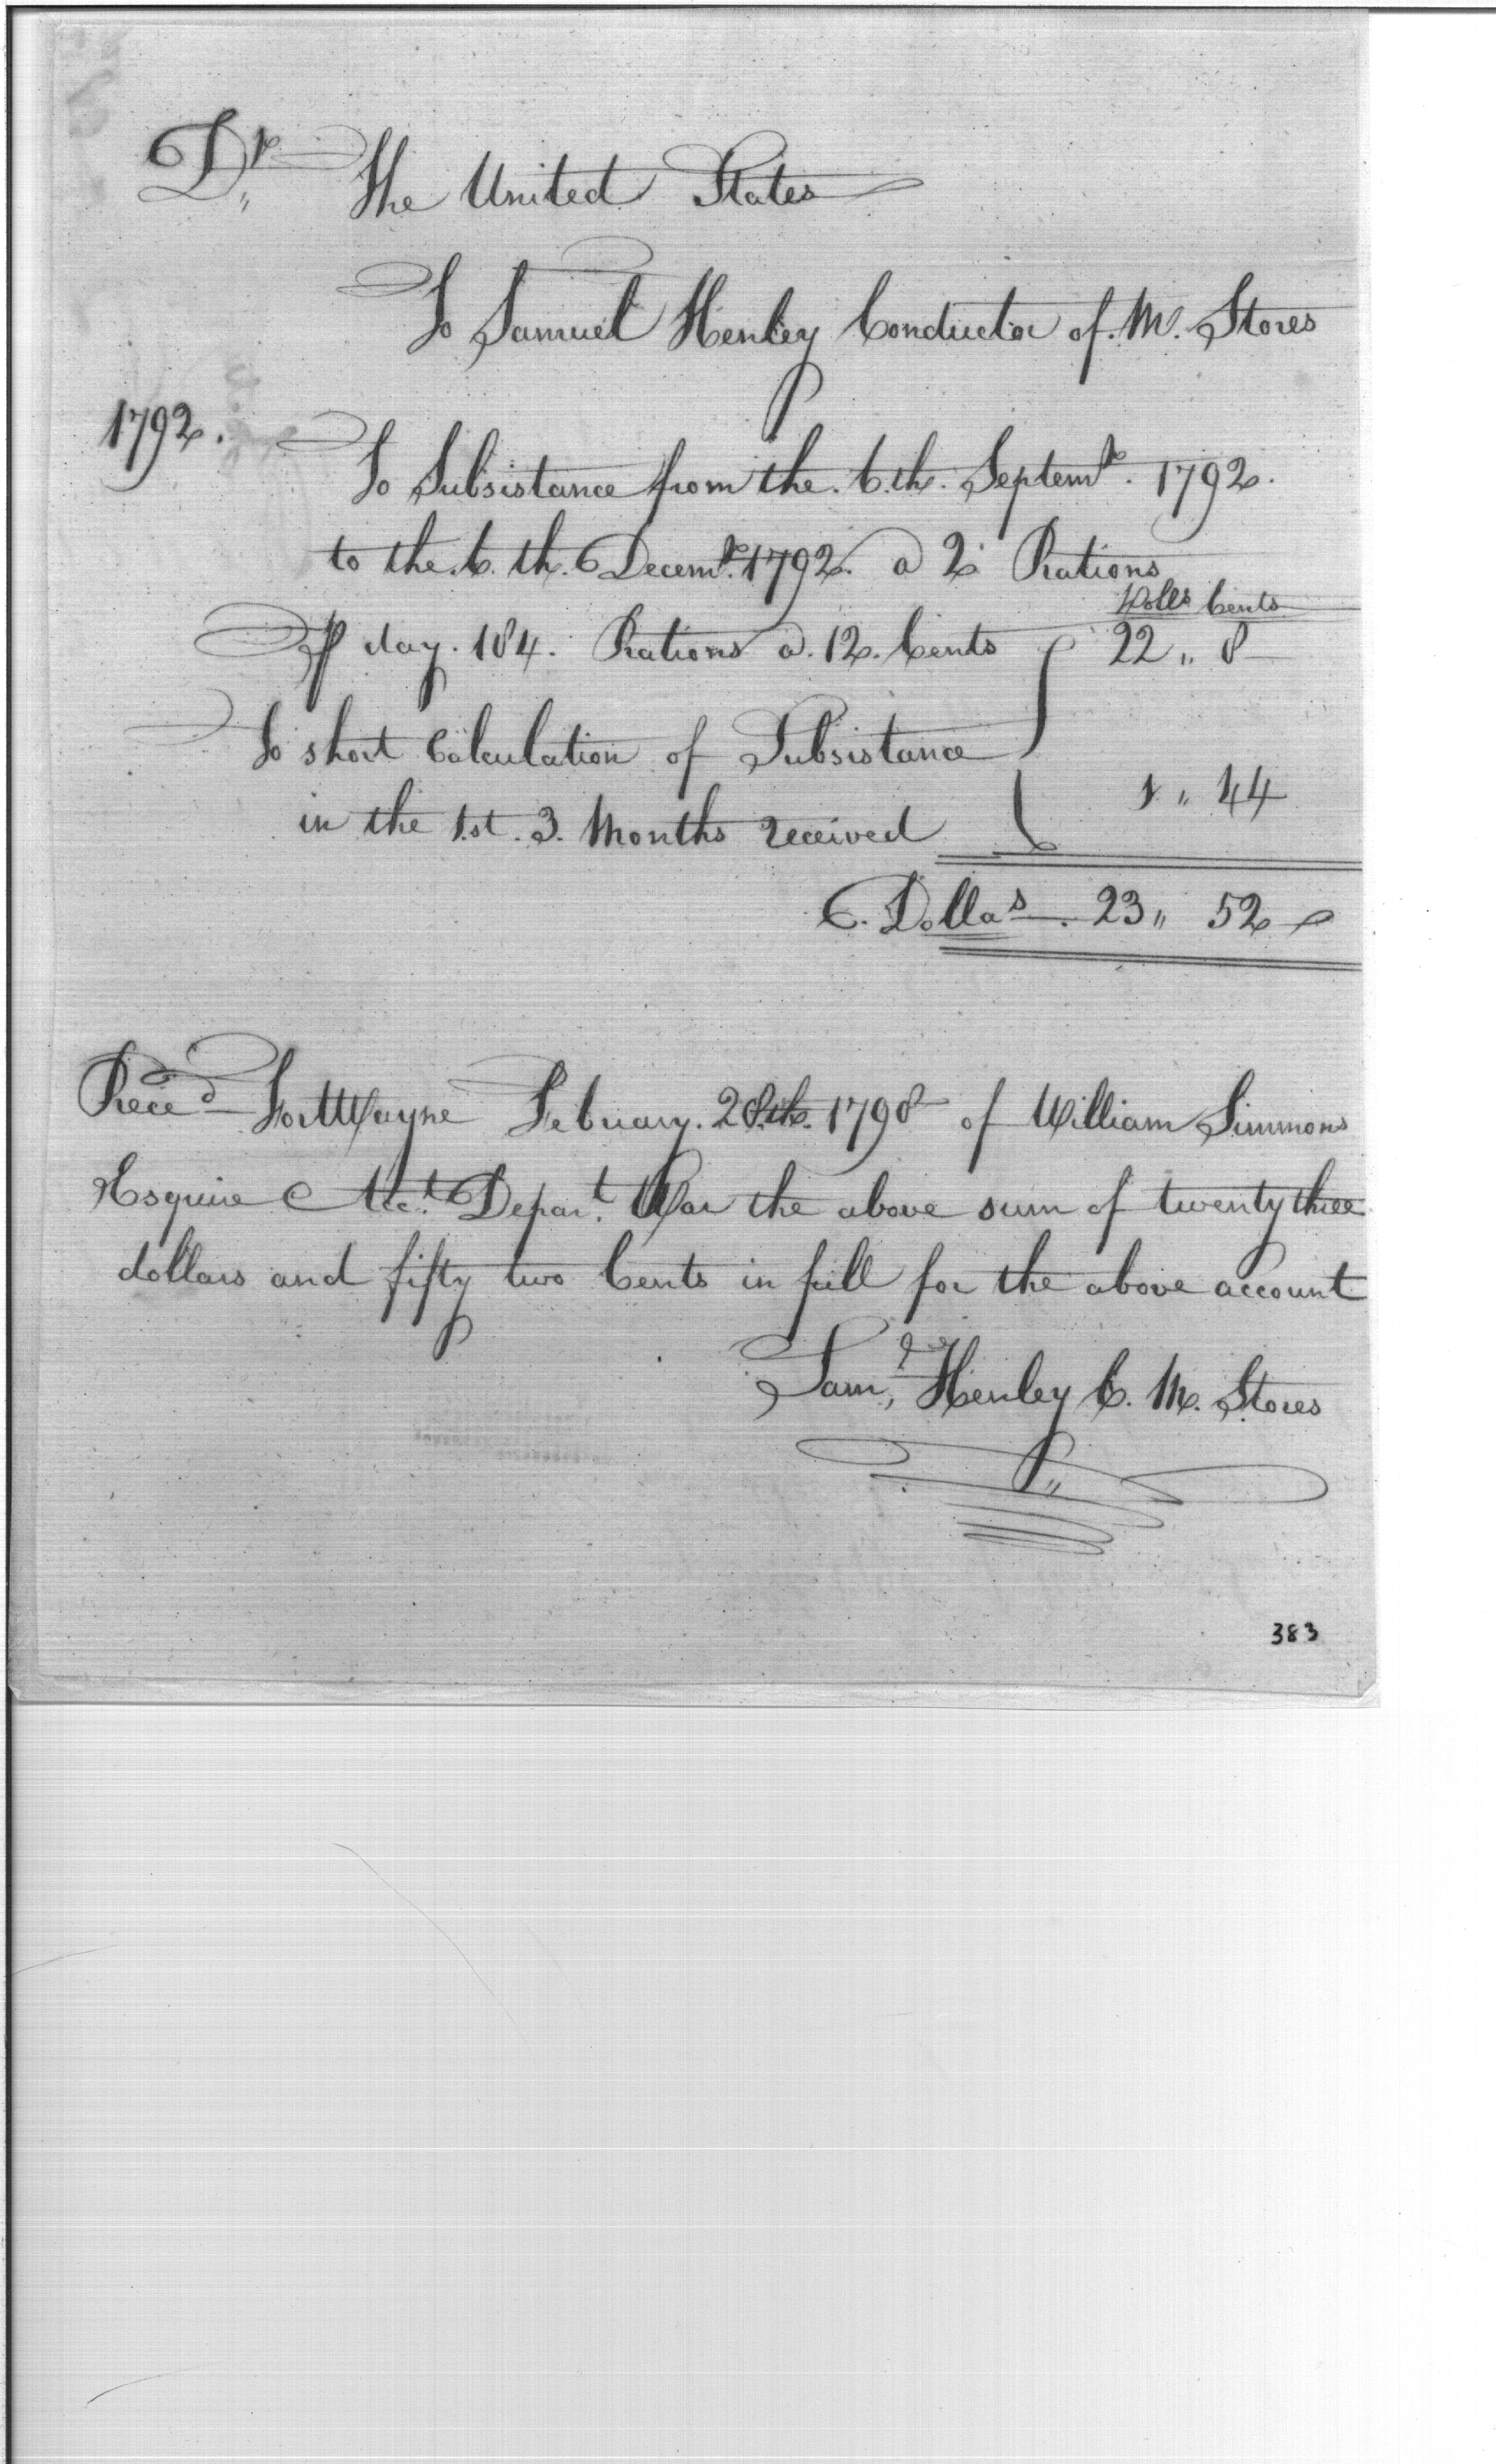 Dr The United States
To Samuel Henley Conductor of M. Stores
1792.
To Subsistance from the 6.th. Septemr. 1792.
to the 6.th. Decemr. 1792. a 2 Rations
Dolls Cents
⅌ day. 184. Rations a. 12. Cents 22 " 8
To short Calculation of Subsistance
in the 1.st. 3. Months received 1 " 44
E. Dollas. 23 " 52
Reced Fort Wayne February. 28.th. 1798 of William Simmons
Esquire Acct. Depart. War the above sum of twenty three
dollars and fifty two Cents in full for the above account
Saml. Henley C. M. Stores
383